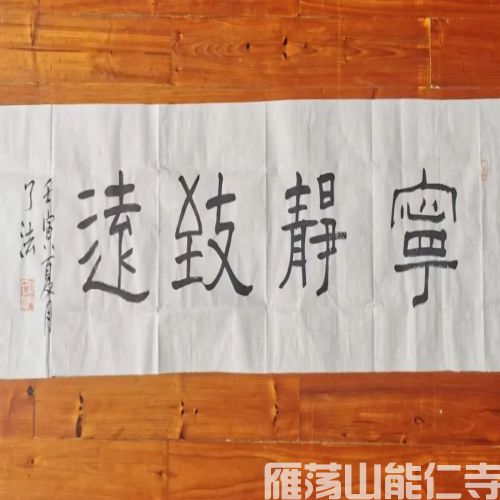 寧靜致遠
壬寅夏月
了法
雁荡山能仁寺